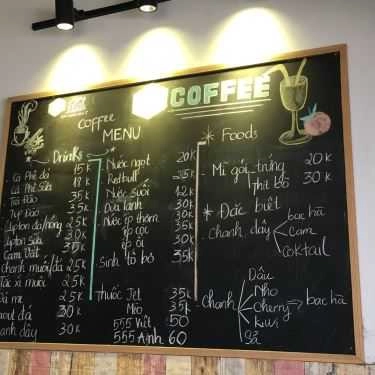 COFFEE
coffee
MENU
Drinks
Cà Phê đá 15K
Cà Phê Sữa 18K
Trà Đào 35K
Túp Đào 35K
Lipton đá nóng 25K
Lipton Sữa 30K
Cam Vắt 30K
chanh muối/đá 25K
Tắc xí muội 25K
đá 30K
chanh dây 30K
Nước ngọt 20K
Redbull 25K
Nước suối 12K
Dừa lạnh 30K
Nước ép thơm 35K
ép cọc 35K
ép ổi 30K
Sinh tố bơ 35K
thuốc Jet 35K
Mèo 35K
555 Việt 50
555 Anh 60
* Foods
Mì gói trứng 20K
thịt bò 30K
* Đặc biệt
Chanh dây bạc hà
Cam
cocktail
Chanh Dâu
Nho
Cherry bạc hà
Kiwi
Sả